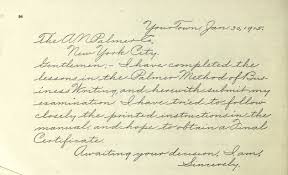 Your Town, Jan 30, 1915.
The A. N. Palmer Co.,
New York City.
Gentlemen:- I have completed the
lessons in the Palmer Method of Bus-
iness Writing, and herewith submit my
examination. I have tried to follow
closely the printed instructions in the
manual, and hope to obtain a Final
Certificate.
Awaiting your decision, I am,
Sincerely,